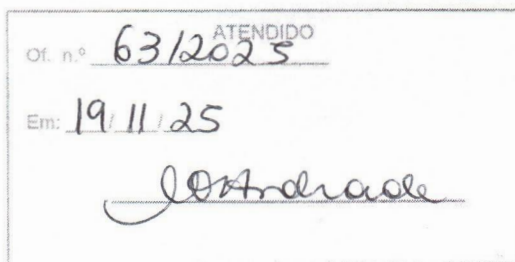 ATENDIDO
Of. n.º 63/2025
Em: 19/11/25